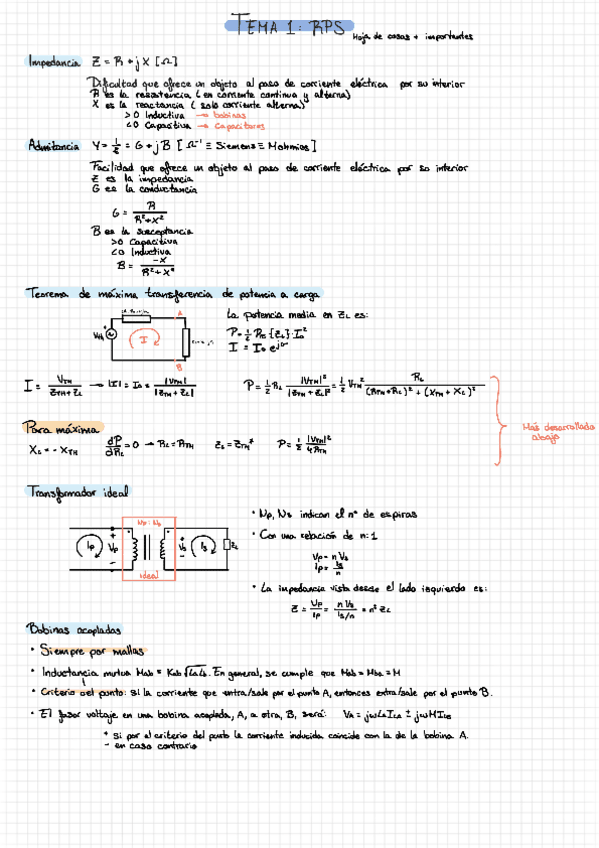 TEMA 1: RPS
Hoja de cosas + importantes
Impedancia Z = R + jX [Ω]
Dificultad que ofrece un objeto al paso de corriente eléctrica por su interior
R es la resistencia (en corriente continua y alterna)
X es la reactancia (solo corriente alterna)
>0 Inductiva → bobinas
<0 Capacitiva → Capacitores
Admitancia Y = 1/Z = G + jB [Ω⁻¹ ≡ Siemens ≡ Mohmios]
Facilidad que ofrece un objeto al paso de corriente eléctrica por su interior
Z es la impedancia
G es la conductancia
G = R/(R²+X²)
B es la susceptancia
>0 Capacitiva
<0 Inductiva
B = -X/(R²+X²)
Teorema de máxima transferencia de potencia a carga
A
I
B
La potencia media en ZL es:
P = 1/2 Re{ZL}·I₀²
I = I₀ e^jθ
I = VTH/(ZTH+ZL) → |I| = I₀ = |VTH|/|ZTH+ZL| P = 1/2 RL |VTH|²/|ZTH+ZL|² = 1/2 VTH² RL/((RTH+RL)² + (XTH+XL)²)
Más desarrollado abajo
Para máxima
XL = -XTH dP/dRL = 0 → RL = RTH ZL = ZTH* P = 1/2 |VTH|²/4RTH
Transformador ideal
Np : Ns
Ip Vp Vs Is ZL
ideal
• Np, Ns indican el nº de espiras
• Con una relación de n:1
Vp = n Vs
Ip = Is/n
• La impedancia vista desde el lado izquierdo es:
Z = Vp/Ip = nVs/(Is/n) = n² ZL
Bobinas acopladas
• Siempre por mallas
• Inductancia mutua Mab = Kab √LaLb. En general, se cumple que Mab = Mba = M
• Criterio del punto: Si la corriente que entra/sale por el punto A, entonces entra/sale por el punto B.
• El fasor voltaje en una bobina acoplada, A, a otra, B, será: VA = jωLaILA ± jωMILB
+ si por el criterio del punto la corriente inducida coincide con la de la bobina A.
- en caso contrario